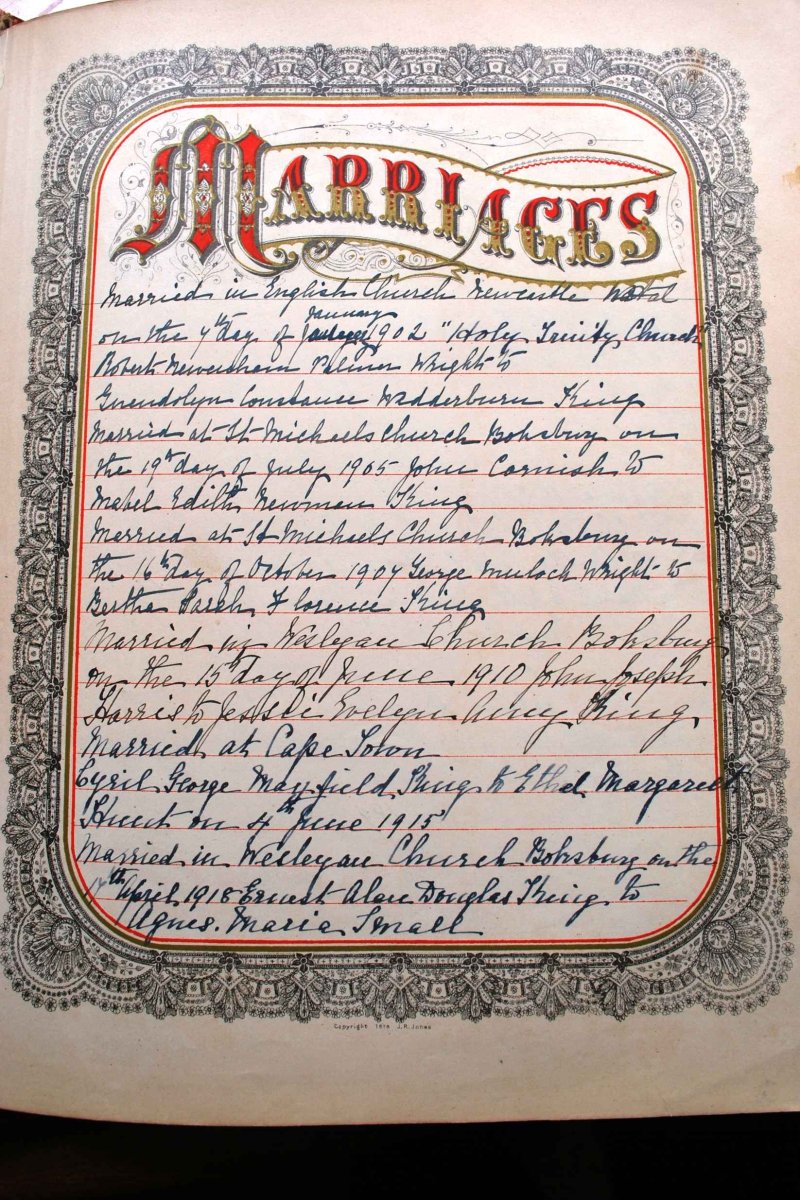 MARRIAGES
Married in English Church Newcastle Natal
January
on the 7th day of 1902 "Holy Trinity Church"
Robert Newenham Palmer Wright to
Guendolyn Constance Wedderburn King
Married at St Michaels Church Boksburg on
the 19th day of July 1905 John Cornish to
Mabel Edith Newman King
Married at St Michaels Church Boksburg on
the 16th day of October 1907 George Muloch Wright to
Bertha Sarah Florence King
Married in Wesleyan Church Boksburg
on the 15th day of June 1910 John Joseph
Harris to Jessie Evelyn Amy King
Married at Cape Town
Cyril George Mayfield King to Ethel Margaret
Hunt on 4th June 1915
Married in Wesleyan Church Boksburg on the
April 1918 Ernest Alan Douglas King to
Agnes. Maria Small
Copyright 1878 J.R. Jones